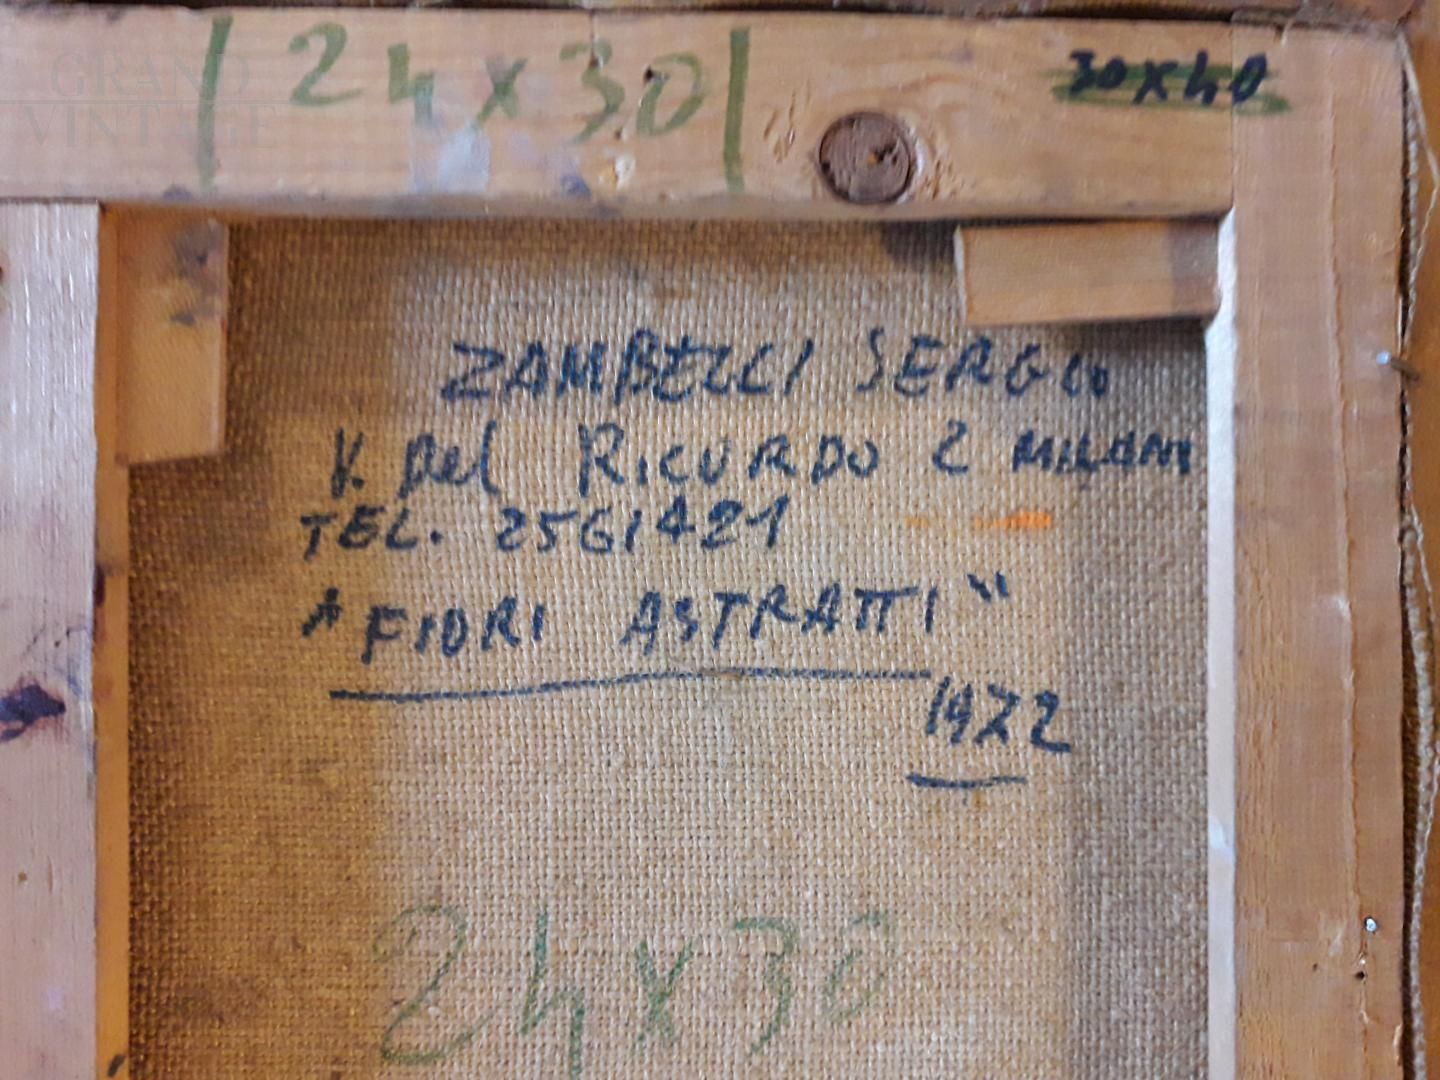 GRAND
VINTAGE
24x30
30x40
ZAMBELLI SERGIO
V. Del RICORDO 2 MILANO
TEL. 2561421
"FIORI ASTRATTI"
1972
24x30